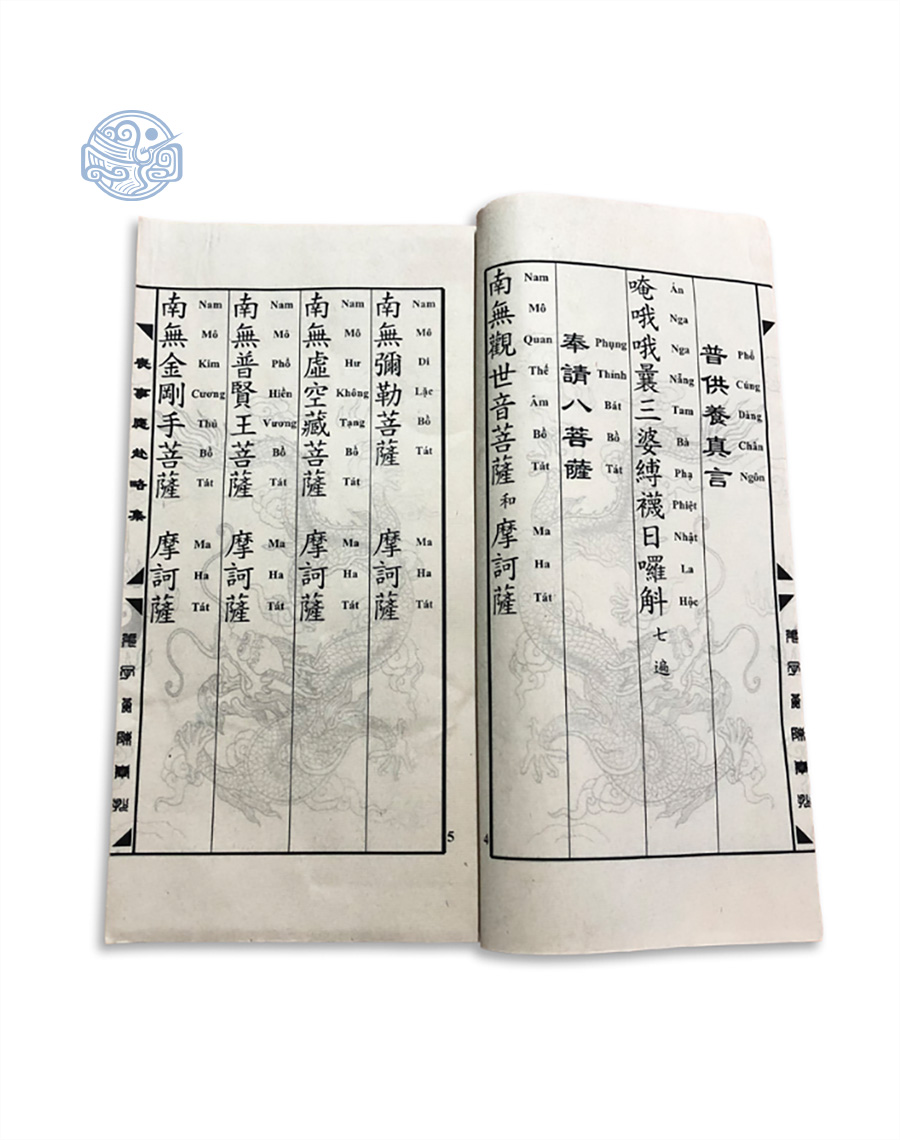 Phổ Cúng Dàng Chân Ngôn
普供養真言
Án Nga Nga Nẵng Tam Bà Phạ Phiệt Nhật La Hộc
唵哦哦曩三婆縛襪日囉斛 七遍
Phụng Thỉnh Bát Bồ Tát
奉請八菩薩
Nam Mô Quan Thế Âm Bồ Tát Ma Ha Tát
南無觀世音菩薩 和 摩訶薩
4
Nam Mô Di Lặc Bồ Tát Ma Ha Tát
南無彌勒菩薩 摩訶薩
Nam Mô Hư Không Tạng Bồ Tát Ma Ha Tát
南無虛空藏菩薩 摩訶薩
Nam Mô Phổ Hiền Vương Bồ Tát Ma Ha Tát
南無普賢王菩薩 摩訶薩
Nam Mô Kim Cương Thủ Bồ Tát Ma Ha Tát
南無金剛手菩薩 摩訶薩
喪事應赴略集
5